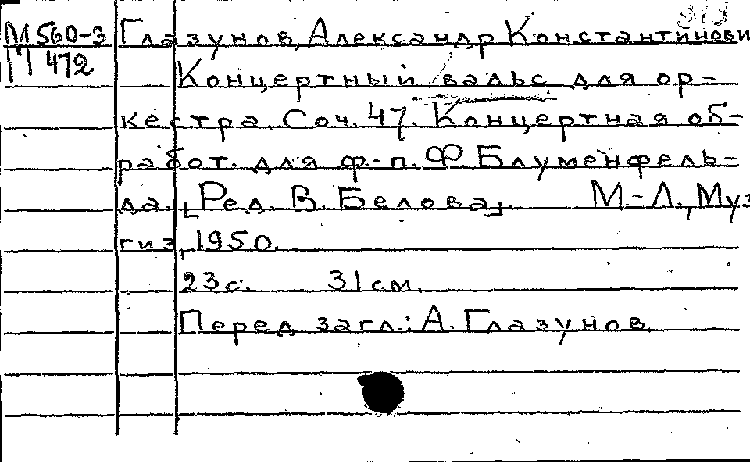 М560-3 Глазунов, Александр Константинови
М 472
Концертный вальс для ор-
кестра. Соч. 47. Концертная об-
работ. для ф.-п. Ф Блуменфель-
да. [Ред. В. Белова]. М-Л., Муз
гиз, 1950.
23с. 31см.
Перед загл.: А. Глазунов.